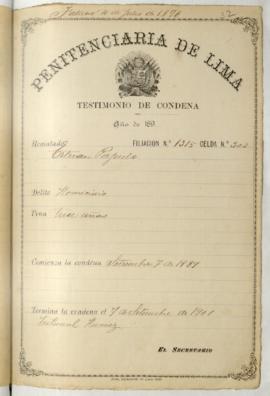 Julio de 1890
PENITENCIARIA DE LIMA
TESTIMONIO DE CONDENA
Año de 189
Rematado FILIACION N.° 1315 CELDA N.° 302
Delito Homicidio
Pena años
Comienza la condena Setiembre 7 de 1889
Termina la condena el 7 de Setiembre de 1901
Tribunal
EL SECRETARIO